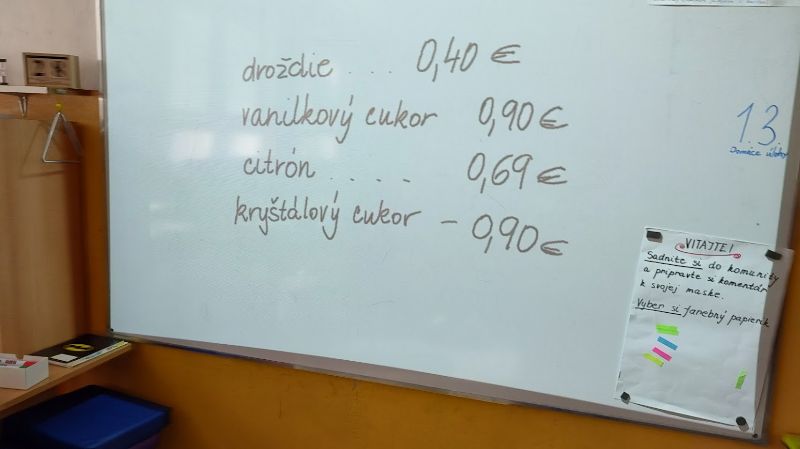 droždie .... 0,40 €
vanilkový cukor 0,90 €
citrón .... 0,69 €
kryštálový cukor – 0,90 €
13.
Domáce úlohy
VITAJTE!
Sadnite si do komunity
a pripravte si komentár
k svojej maske.
Vyber si farebný papierik